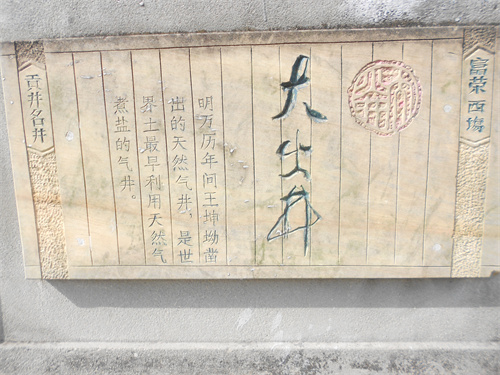 富荣西场
大出井
明万历年间王坤坳凿
出的天然气井，是世
界上最早利用天然气
煮盐的气井。
贡井名井